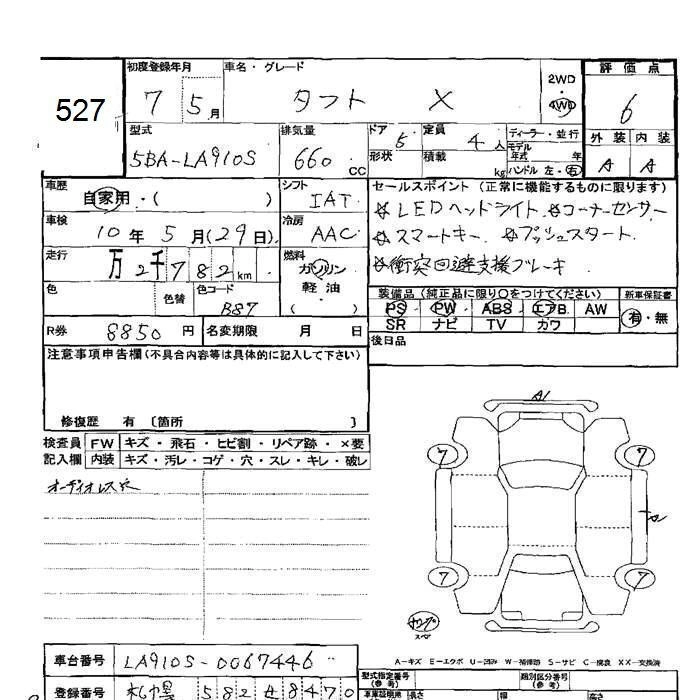 527
初度登録年月 車名・グレード 2WD 評価点
7 5月 タフト X 4WD 6
型式 排気量 ドア 5 定員 4人 ディーラー・並行 外装 内装
5BA-LA910S 660cc 形状 積載 kg モデル年式 年 A A
ハンドル 左・右
車歴 シフト セールスポイント(正常に機能するものに限ります)
自家用・( ) IAT ☆LEDヘッドライト ☆コーナーセンサー
車検 冷房
10年5月(29日) AAC ☆スマートキー ☆プッシュスタート
走行 燃料
万2千782km ガソリン ☆衝突回避支援ブレーキ
色 色替 色コード 軽油
B87 ( )
装備品(純正品に限り○をつけてください) 新車保証書
PS PW ABS エアB AW 有・無
SR ナビ TV カワ
R券 8850円 名変期限 月 日
後日品
注意事項申告欄(不具合内容等は具体的に記入して下さい)
修復歴 有〔箇所 〕
検査員 FW キズ・飛石・ヒビ割・リペア跡・×要
記入欄 内装 キズ・汚レ・コゲ・穴・スレ・キレ・破レ
オーディオレス穴
A1
7 7
A
7 7
スペア
A-キズ E-エクボ U-凹み W-補修跡 S-サビ C-腐食 XX-交換済
車台番号 LA910S-0067446
型式指定番号(参考) 類別区分番号(参考)
登録番号 札幌 582 48470
車庫証明用 長さ 幅 高さ